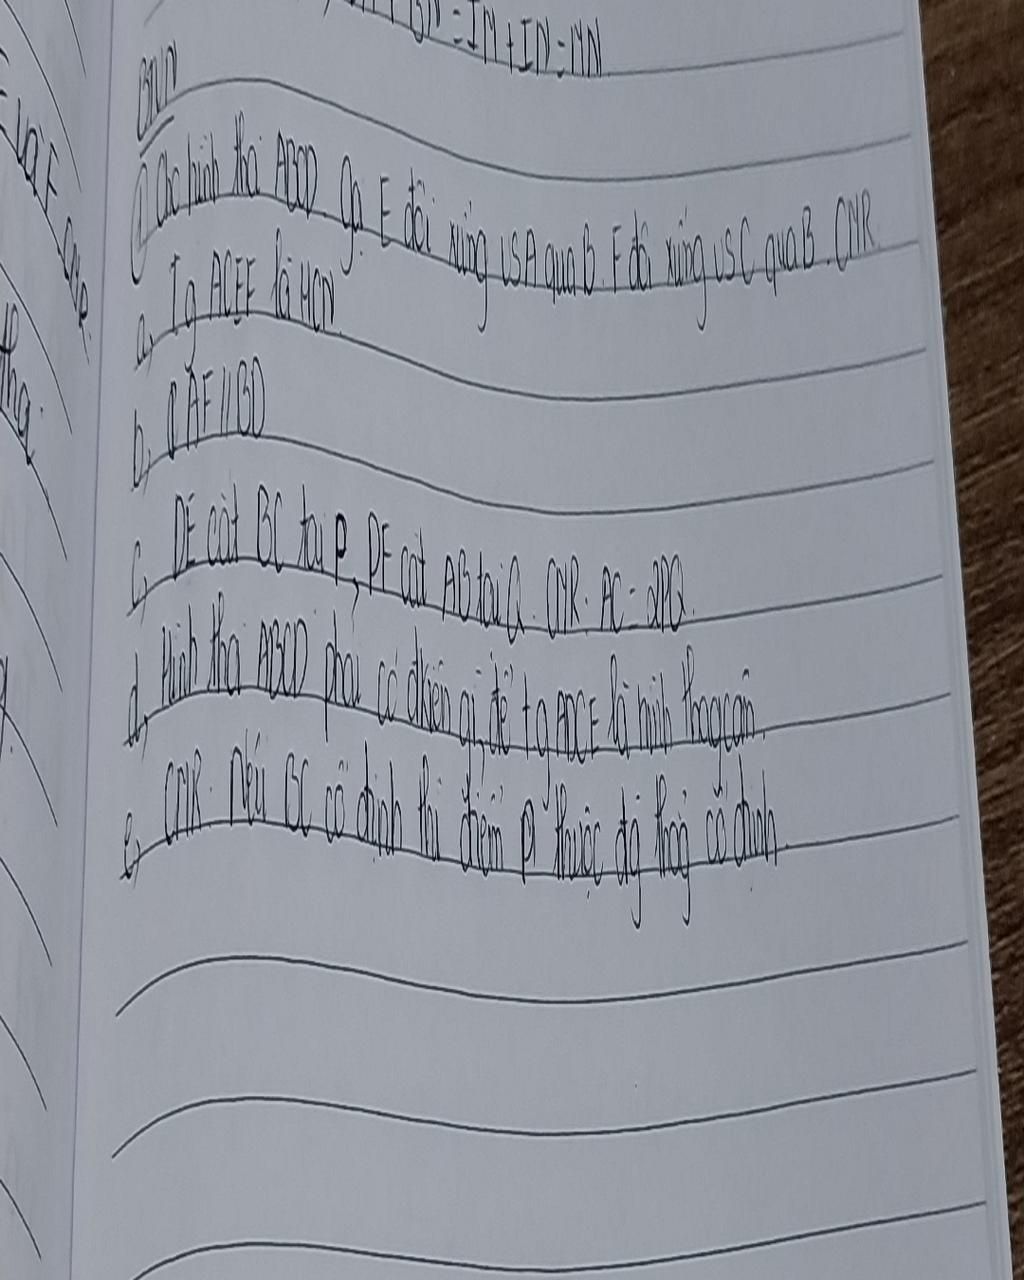 = IM + IN = MN
BNVN
① Cho hình thoi ABCD. Gọi E đối xứng vs A qua B. F đối xứng vs C qua B. CMR
a, Tg ACEF là HCN
b, AF // BD
c, DE cắt BC tại P, DF cắt AB tại Q. CMR: AC = 2PQ
d, Hình thoi ABCD phải có đkiện gì để tg ADCF là hình thang cân
e, CMR. Nếu BC cố định thì điểm P thuộc đg thẳng cố định
và F